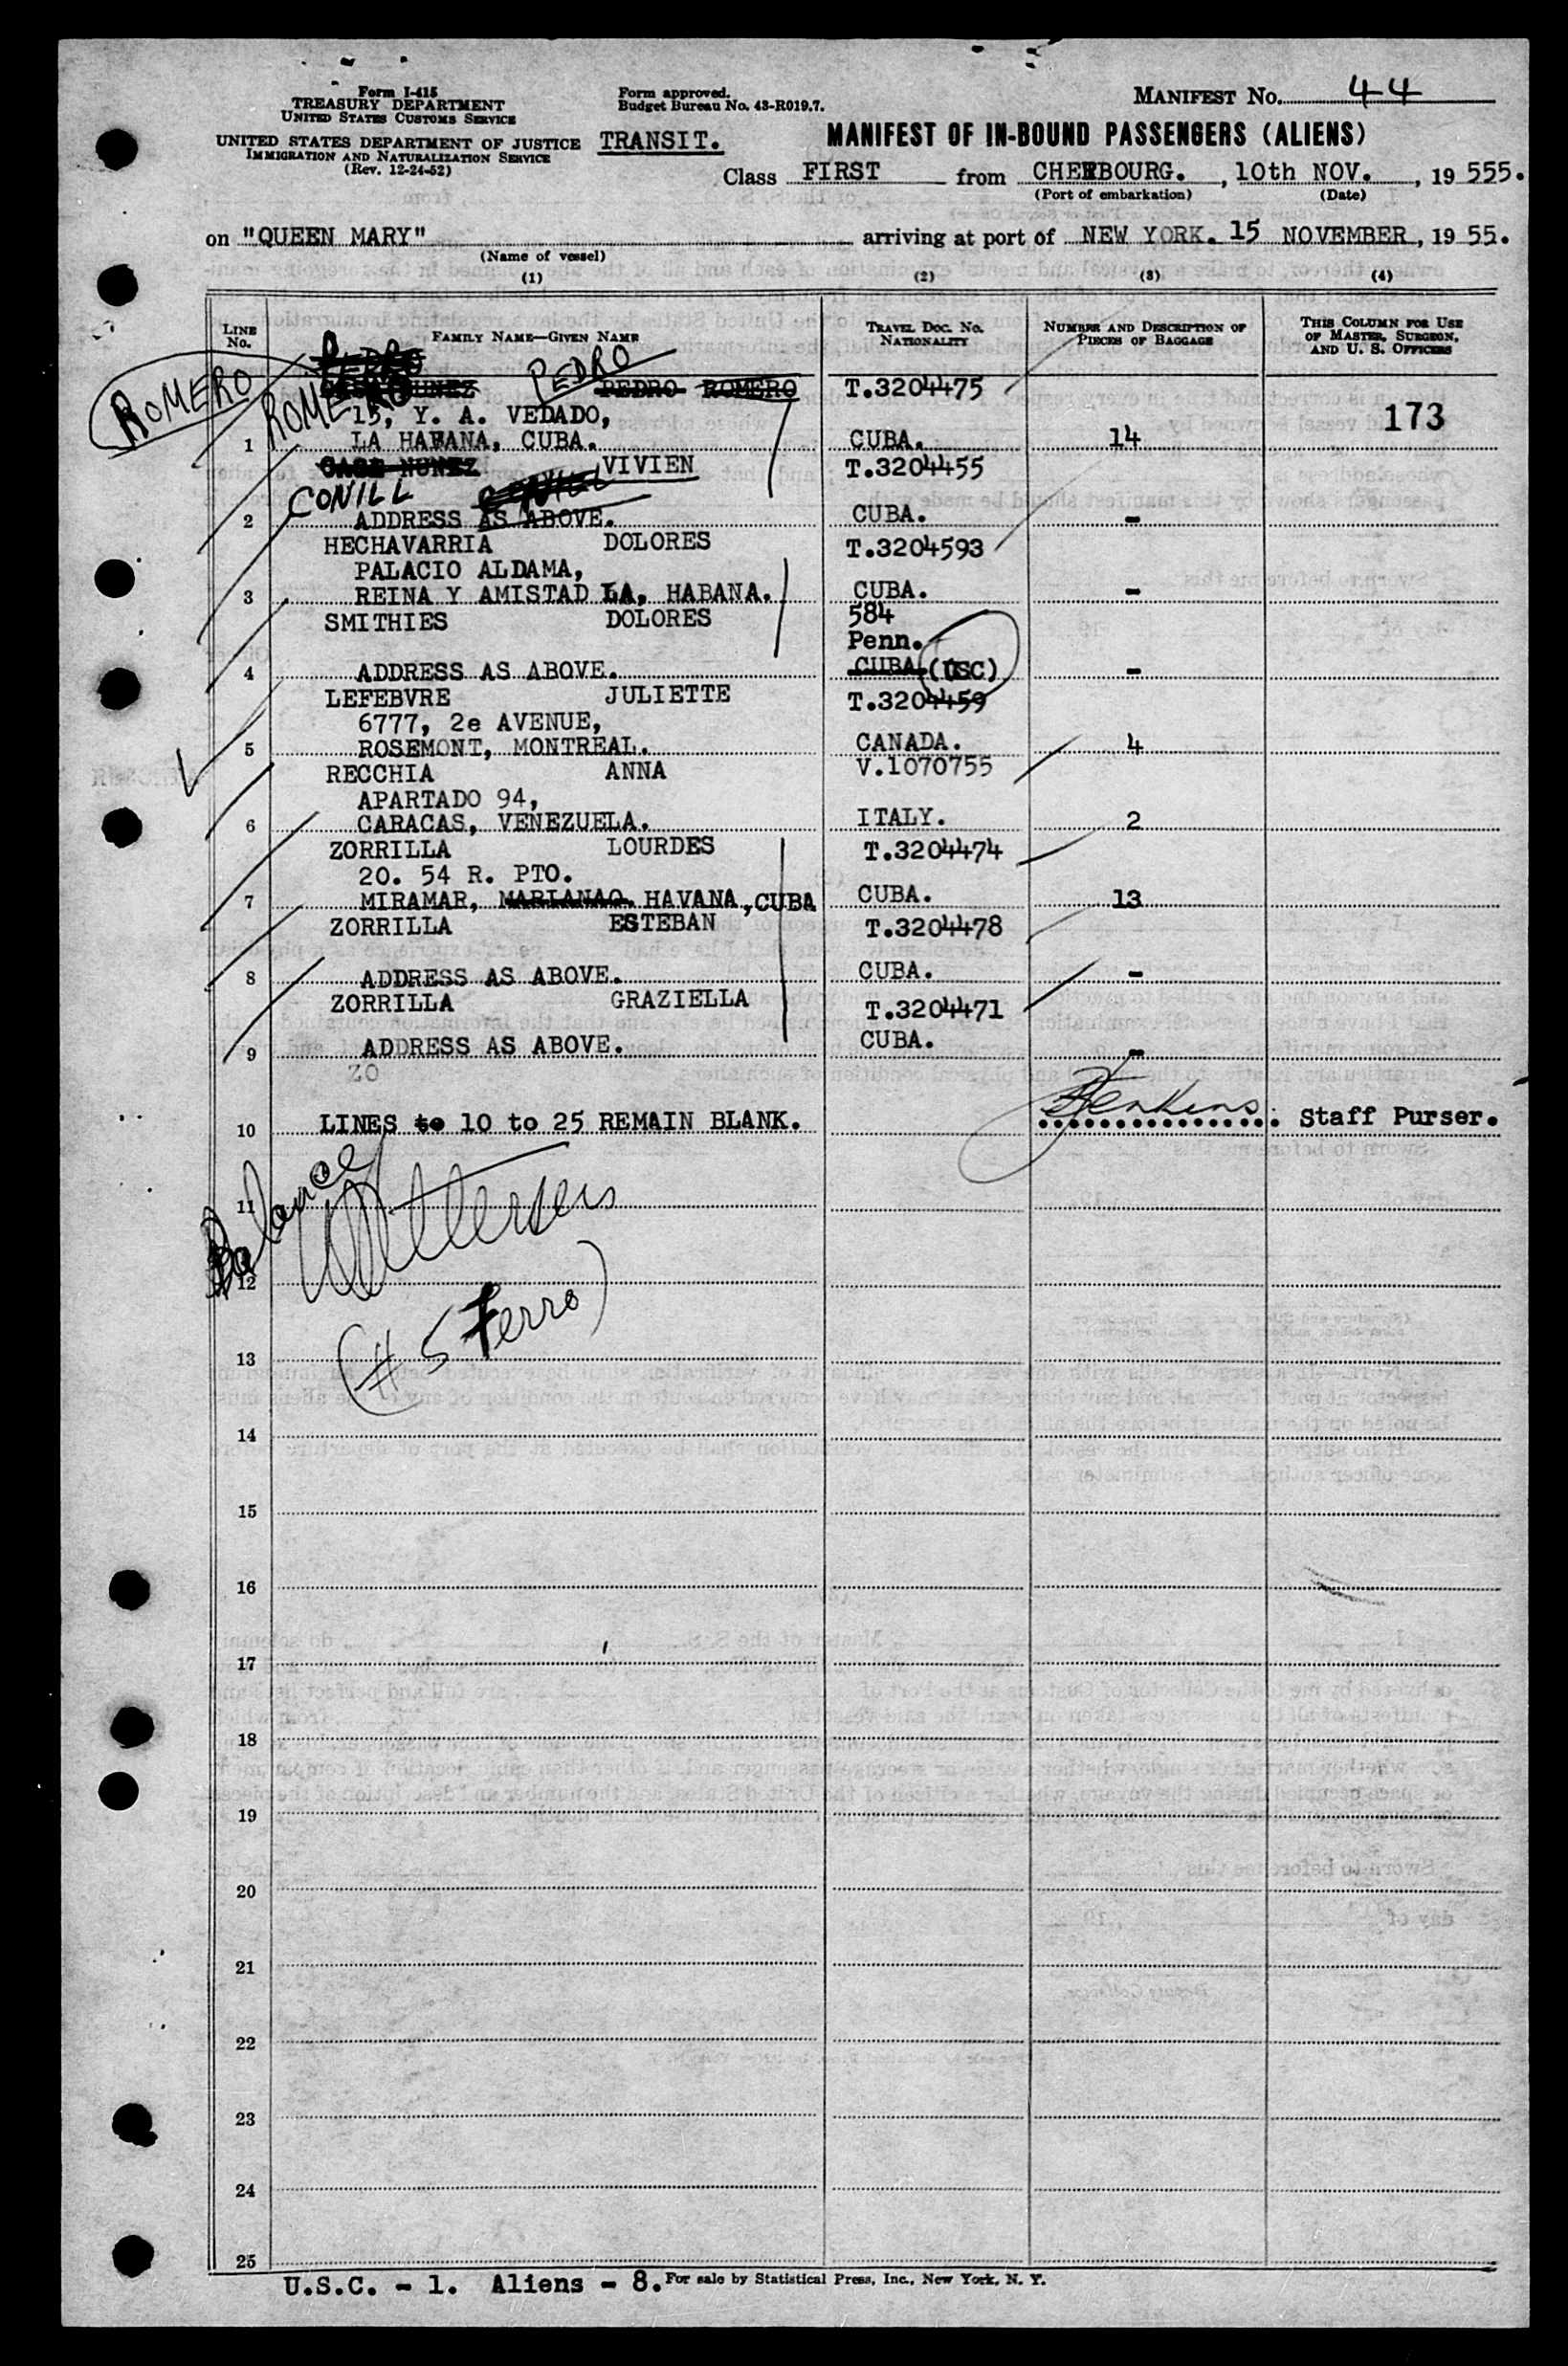 Form I-415
TREASURY DEPARTMENT
UNITED STATES CUSTOMS SERVICE
UNITED STATES DEPARTMENT OF JUSTICE
IMMIGRATION AND NATURALIZATION SERVICE
(Rev. 12-24-52)
Form approved.
Budget Bureau No. 43-R019.7.
TRANSIT.
MANIFEST No. 44
MANIFEST OF IN-BOUND PASSENGERS (ALIENS)
Class FIRST from CHERBOURG. , 10th NOV. , 19 555.
(Port of embarkation) (Date)
on "QUEEN MARY" arriving at port of NEW YORK. 15 NOVEMBER , 19 55.
(Name of vessel)
(1) (2) (3) (4)
LINE No. FAMILY NAME—GIVEN NAME TRAVEL DOC. No. NATIONALITY NUMBER AND DESCRIPTION OF PIECES OF BAGGAGE THIS COLUMN FOR USE OF MASTER, SURGEON, AND U. S. OFFICERS
PEDRO
ROMERO ROMERO PEDRO
NUNEZ PEDRO ROMERO T.3204475
15, Y. A. VEDADO, 173
1 LA HABANA, CUBA. CUBA. 14
CASE NUNEZ VIVIEN T.3204455
CONILL CONILL
2 ADDRESS AS ABOVE. CUBA. -
HECHAVARRIA DOLORES T.3204593
PALACIO ALDAMA,
3 REINA Y AMISTAD LA, HABANA. CUBA. -
SMITHIES DOLORES 584
Penn.
4 ADDRESS AS ABOVE. CUBA (USC) -
LEFEBVRE JULIETTE T.3204459
6777, 2e AVENUE,
5 ROSEMONT, MONTREAL. CANADA. 4
RECCHIA ANNA V.1070755
APARTADO 94,
6 CARACAS, VENEZUELA. ITALY. 2
ZORRILLA LOURDES T.3204474
20. 54 R. PTO.
7 MIRAMAR, MARIANAO. HAVANA, CUBA CUBA. 13
ZORRILLA ESTEBAN T.3204478
8 ADDRESS AS ABOVE. CUBA. -
ZORRILLA GRAZIELLA T.3204471
9 ADDRESS AS ABOVE. CUBA. -
ZO
10 LINES to 10 to 25 REMAIN BLANK. Jenkins Staff Purser.
Balance
11
12
(# 5 Ferro)
13
14
15
16
17
18
19
20
21
22
23
24
25
U.S.C. - 1. Aliens - 8. For sale by Statistical Press, Inc., New York, N. Y.